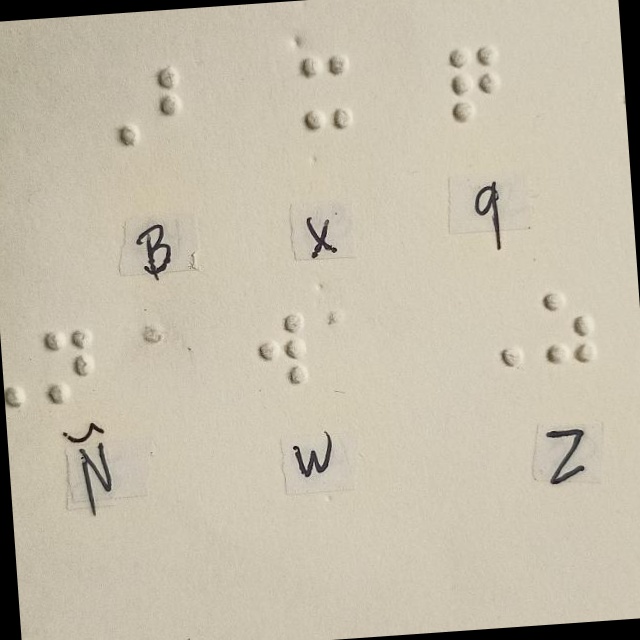 ⠠⠃ ⠭ ⠟
B x q
⠠⠝ ⠺ ⠠⠵
Ñ w Z